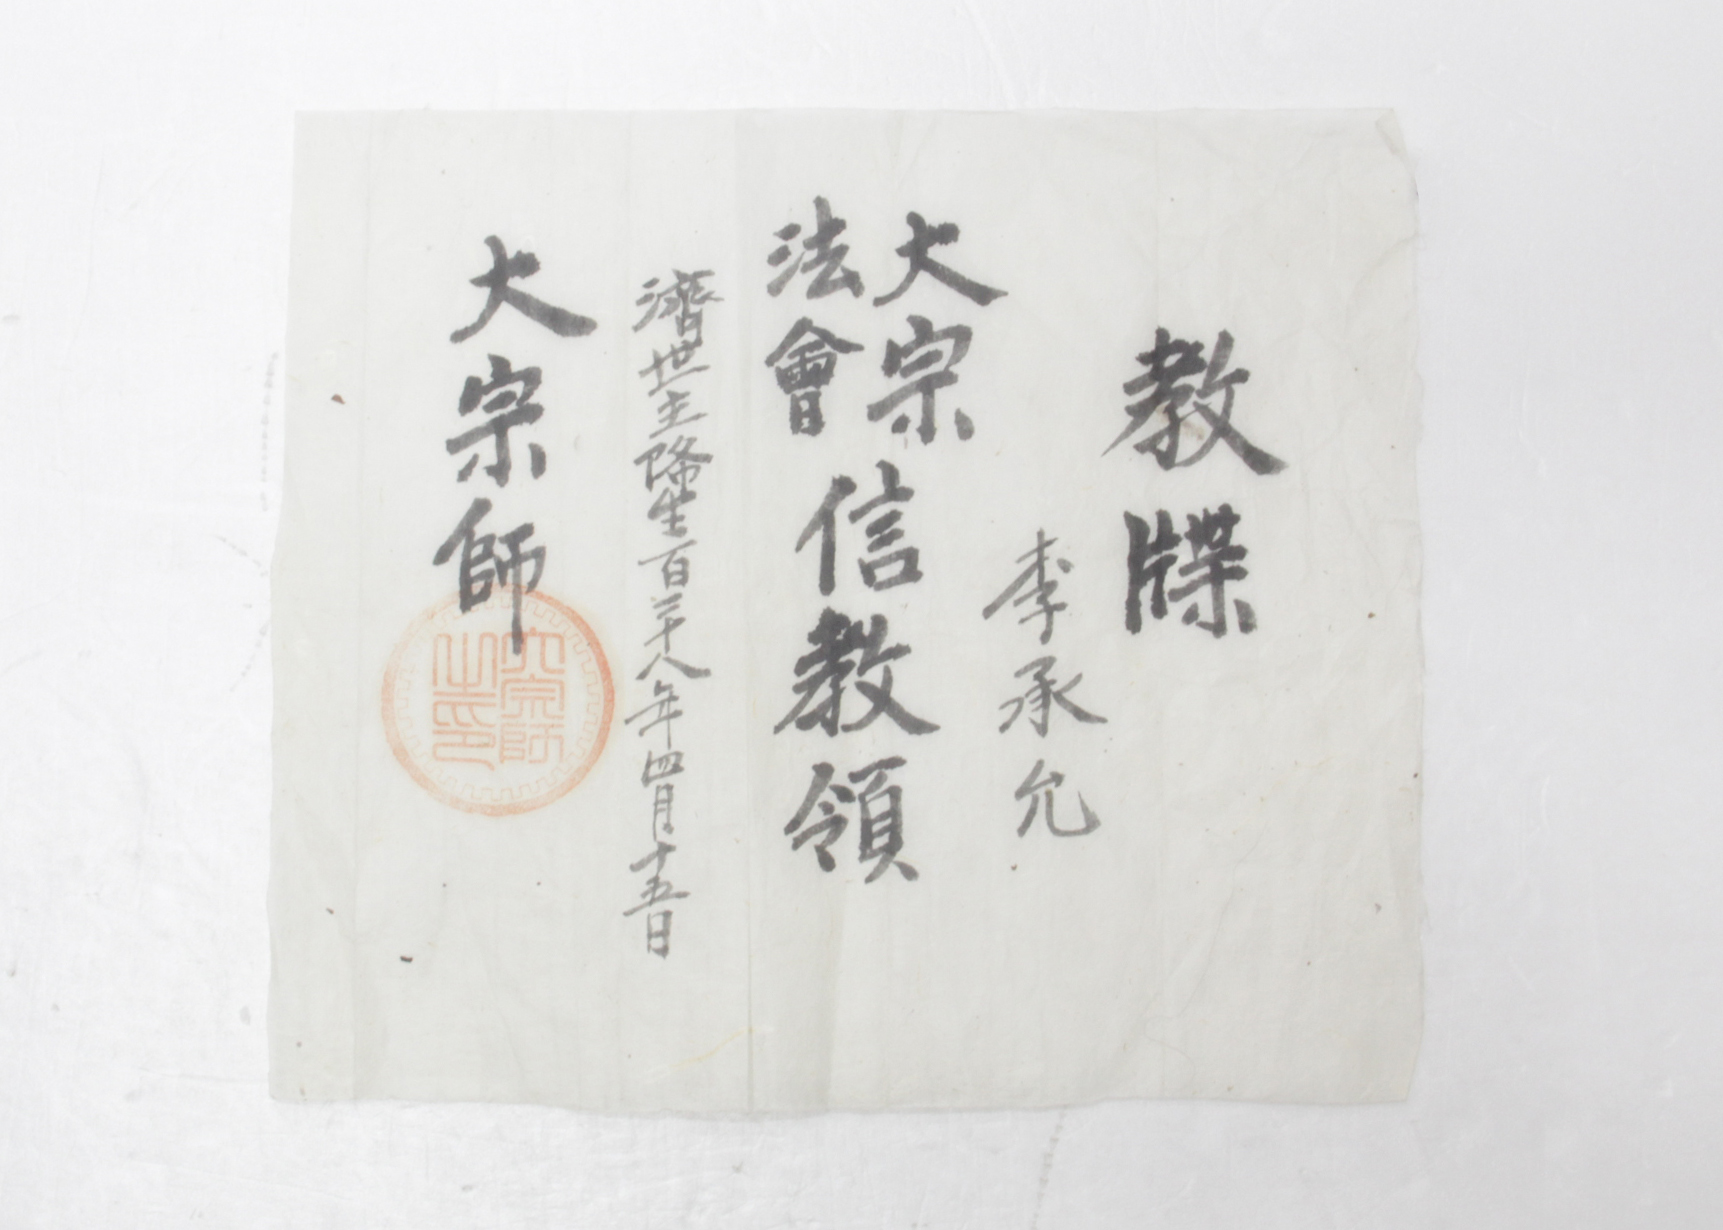 教牒
李承允
大宗
法會
信教領
濟世主降生百三十八年四月十五日
大宗師
大宗師
之印